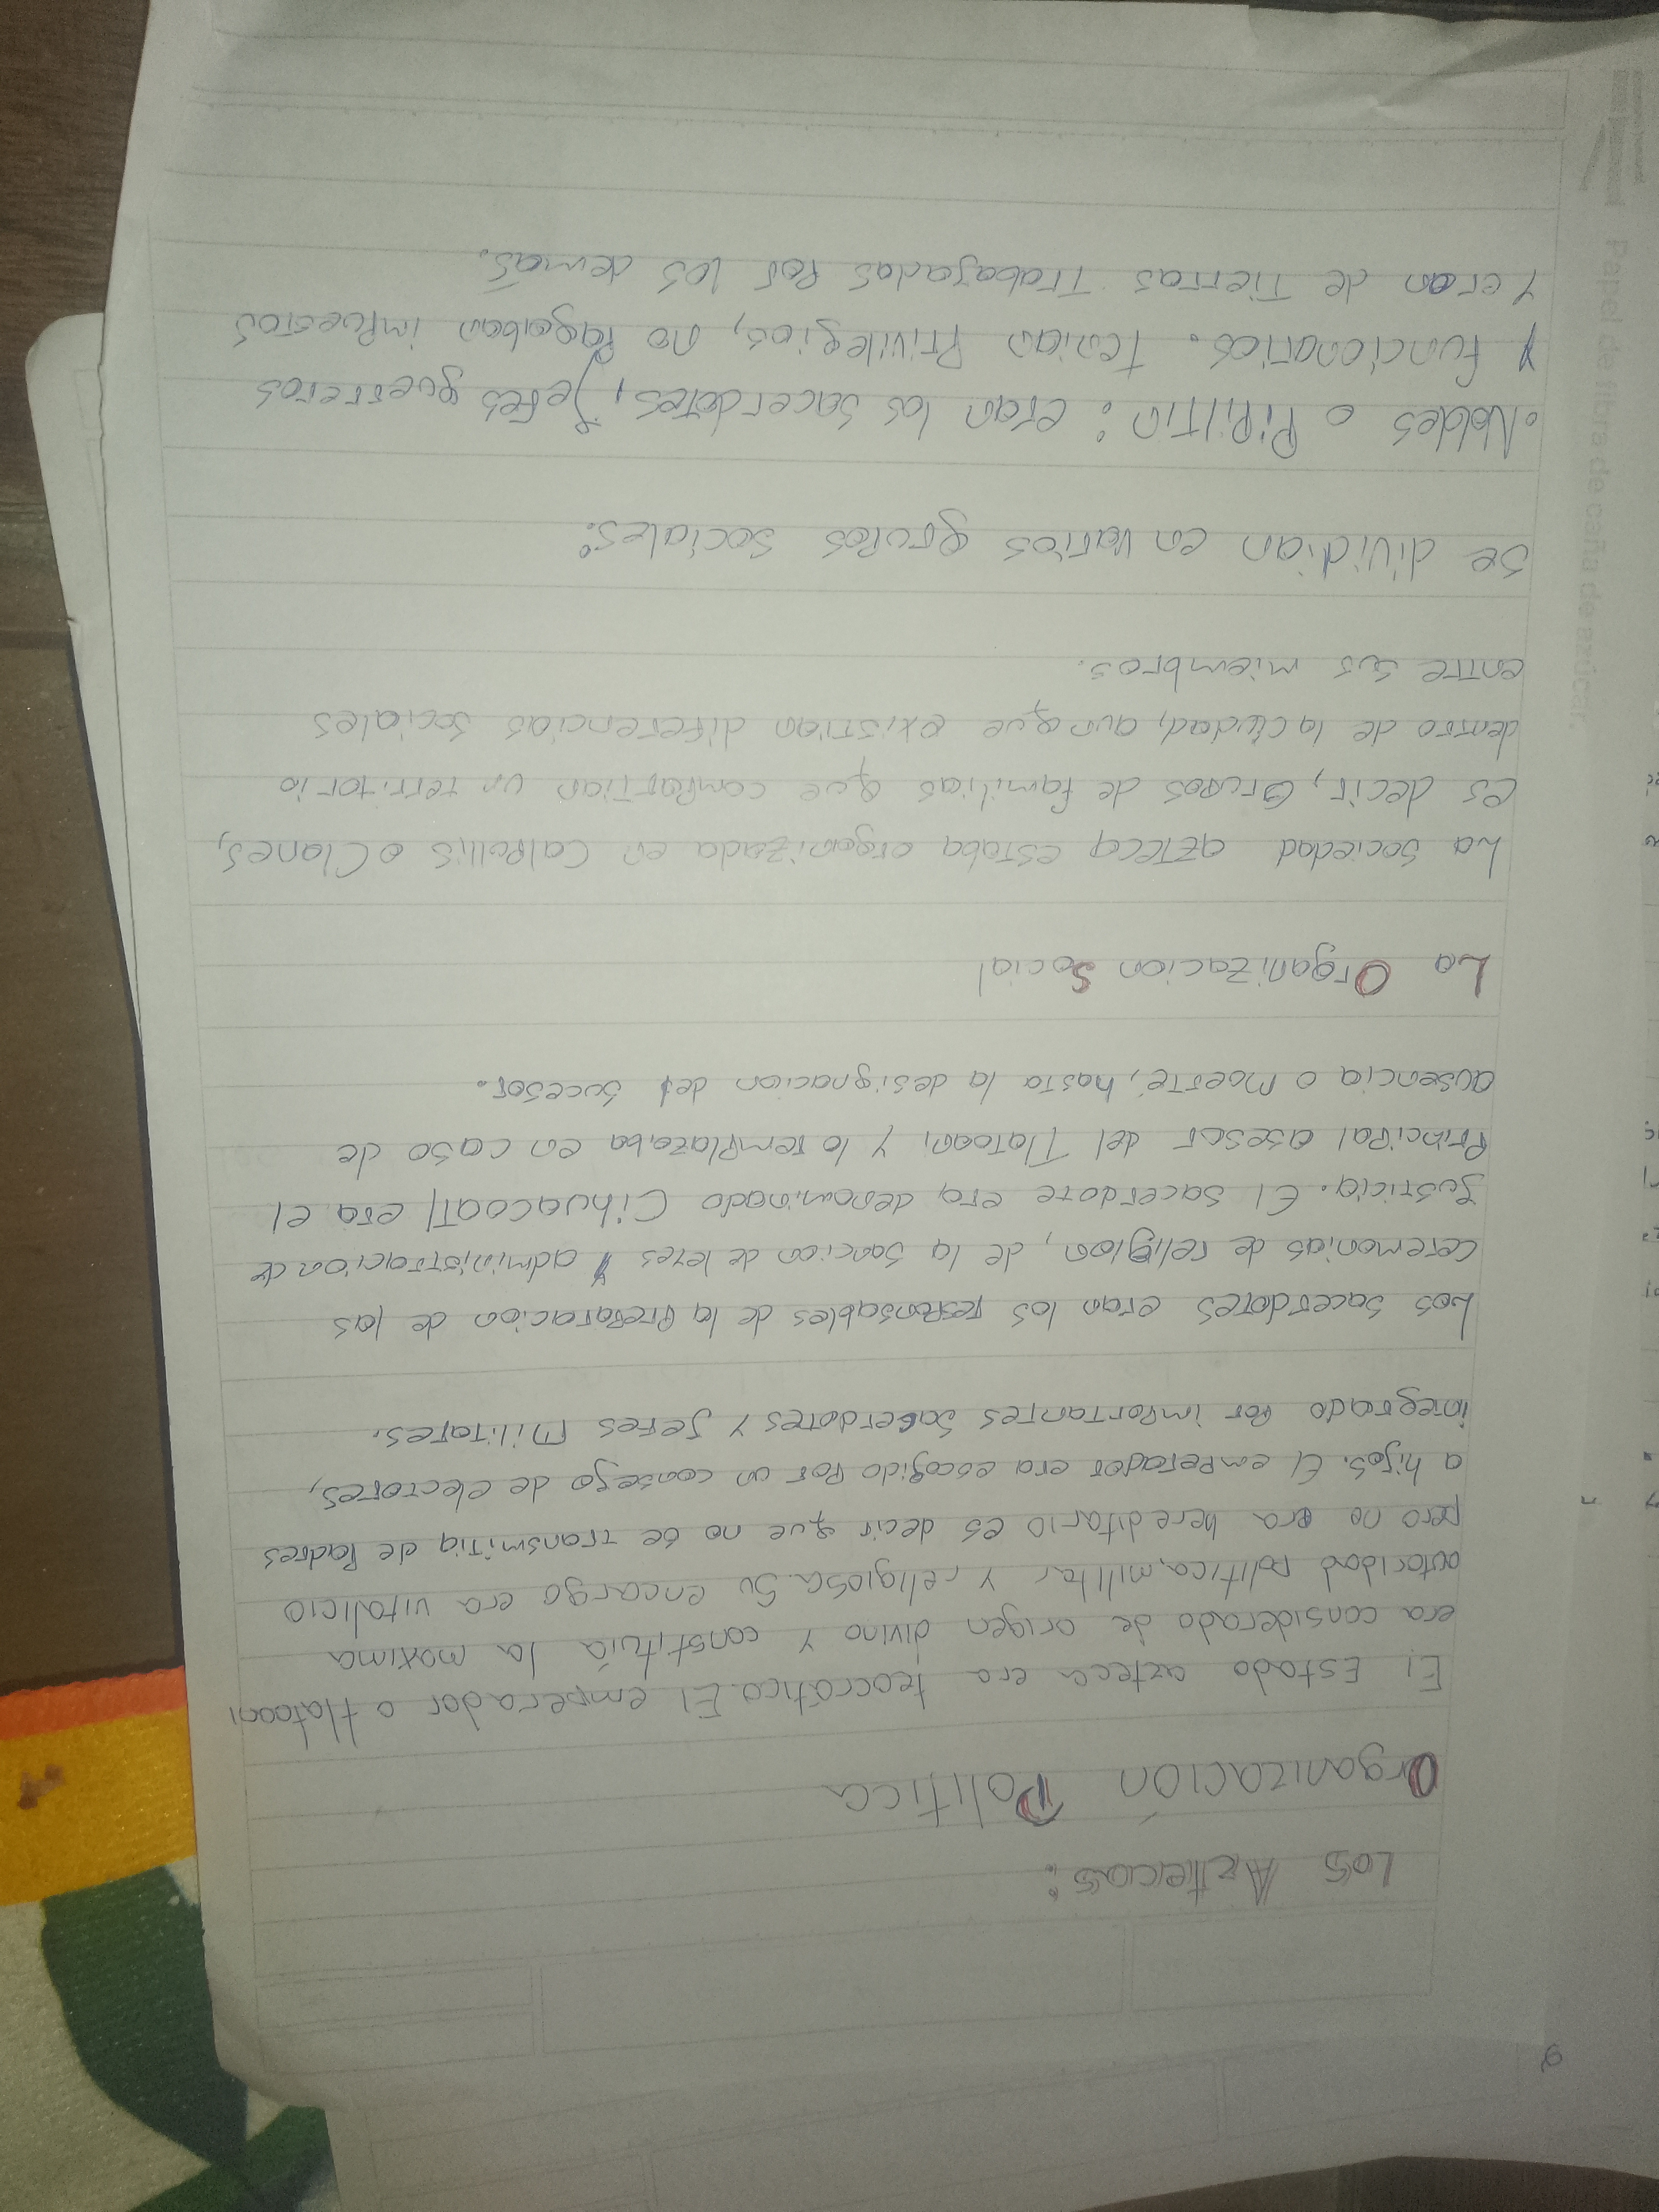 Los Aztecas:
Organización Politica
El Estado azteca era teocrático. El emperador o tlatoani
era considerado de origen divino y constituía la maxima
autoridad politica, militar y religiosa. Su encargo era vitalicio
pero no era hereditario es decir que no se transmitia de Padres
a hijos. El emperador era escogido Por un consejo de electores,
integrado Por importantes sacerdotes y Jefes Militares.
Los sacerdotes eran los responsables de la Preparacion de las
ceremonias de religion, de la sancion de leyes y administracion de
Justicia. El sacerdote era denominado Cihuacoatl era el
Principal asesor del Tlatoani y lo remplazaba en caso de
ausencia o Moerte, hasta la designacion del sucesor.
La Organizacion Social
La sociedad azteca estaba organizada en Calpullis o Clanes,
es decir, Grupos de familias que compartian un territorio
dentro de la ciudad, aunque existian diferencias sociales
entre sus miembros.
se dividian en varios grupos sociales:
• Nobles o Pipiltin: eran los sacerdotes, Jefes guerreros
y funcionarios. Tenian Privilegios, no Pagaban impuestos
y eran de Tierras Trabajadas Por los demás.
Papel de fibra de caña de azúcar.